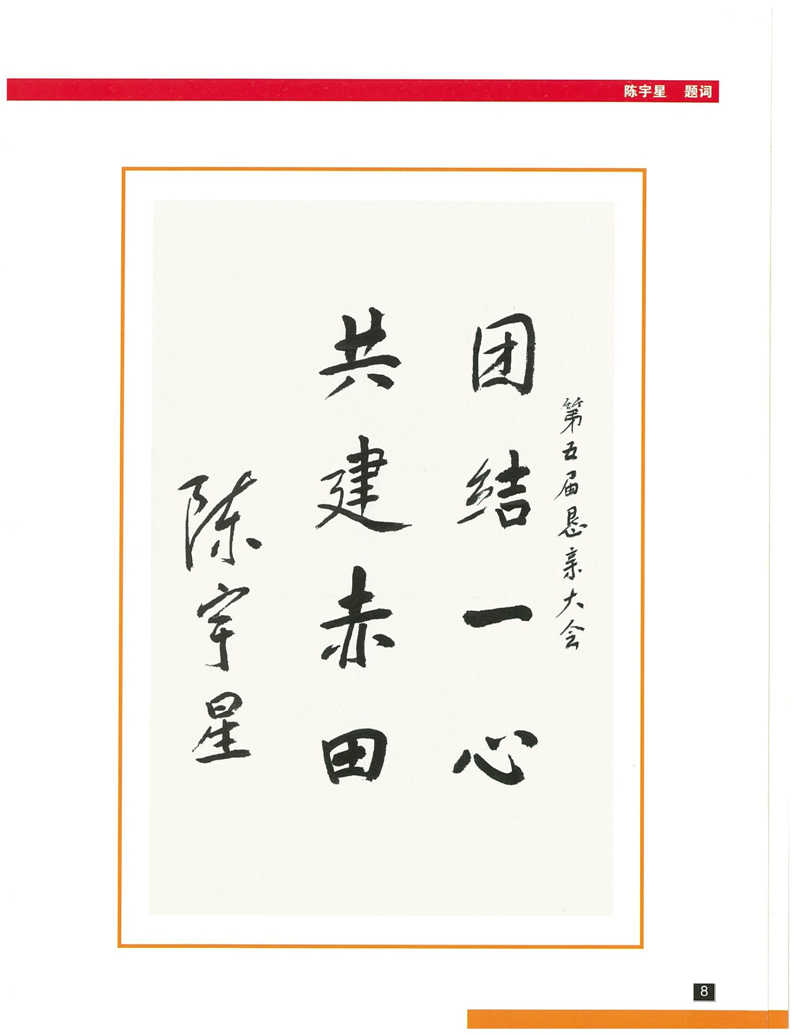 陈宇星 题词
第五届恳亲大会
团结一心
共建赤田
陈宇星
8